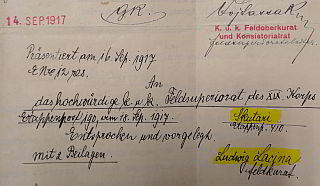 14. SEP 1917
GR.
K. u. k. Feldoberkurat
und Konsistorialrat
Präsentiert am 16. Sep. 1917
E. No 12 res.
An
das hochwürdige k. u. k. Feldsuperiorat des XIX. Korps
Etappenpost 190, am 18. Sep. 1917.
Skutari
Etappenp. 410.
Entsprochen und vorgelegt
mit 2 Beilagen.
Ludwig Lacyna
Feldkurat.